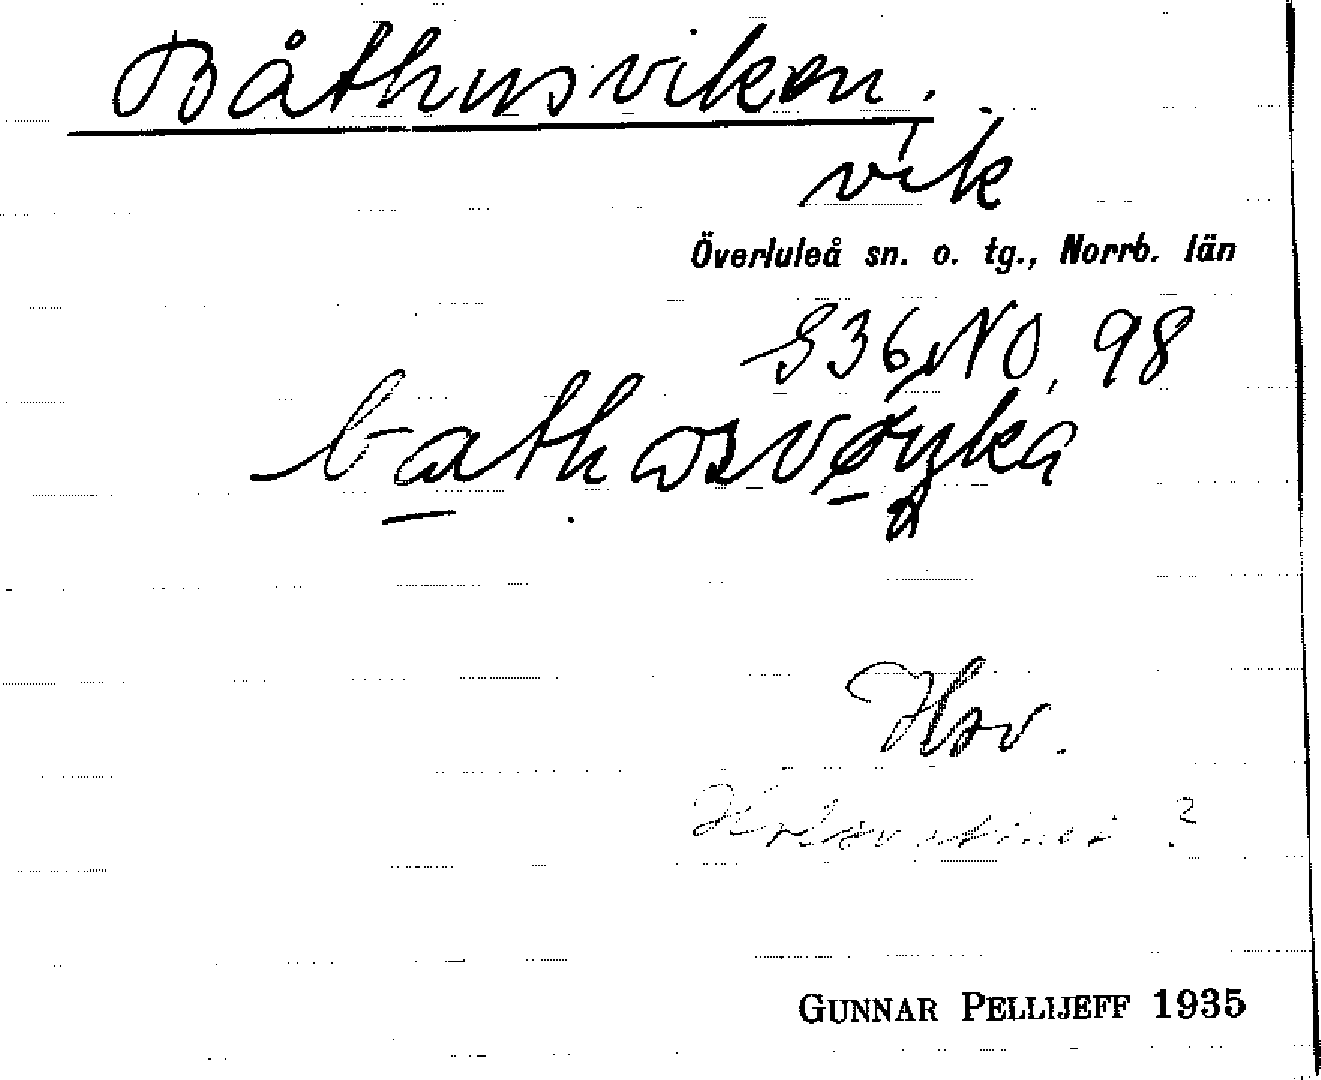 Båthusviken.
vik
Överluleå sn. o. tg., Norrb. län
S36NO, 98
Hsv.
GUNNAR PELLIJEFF 1935